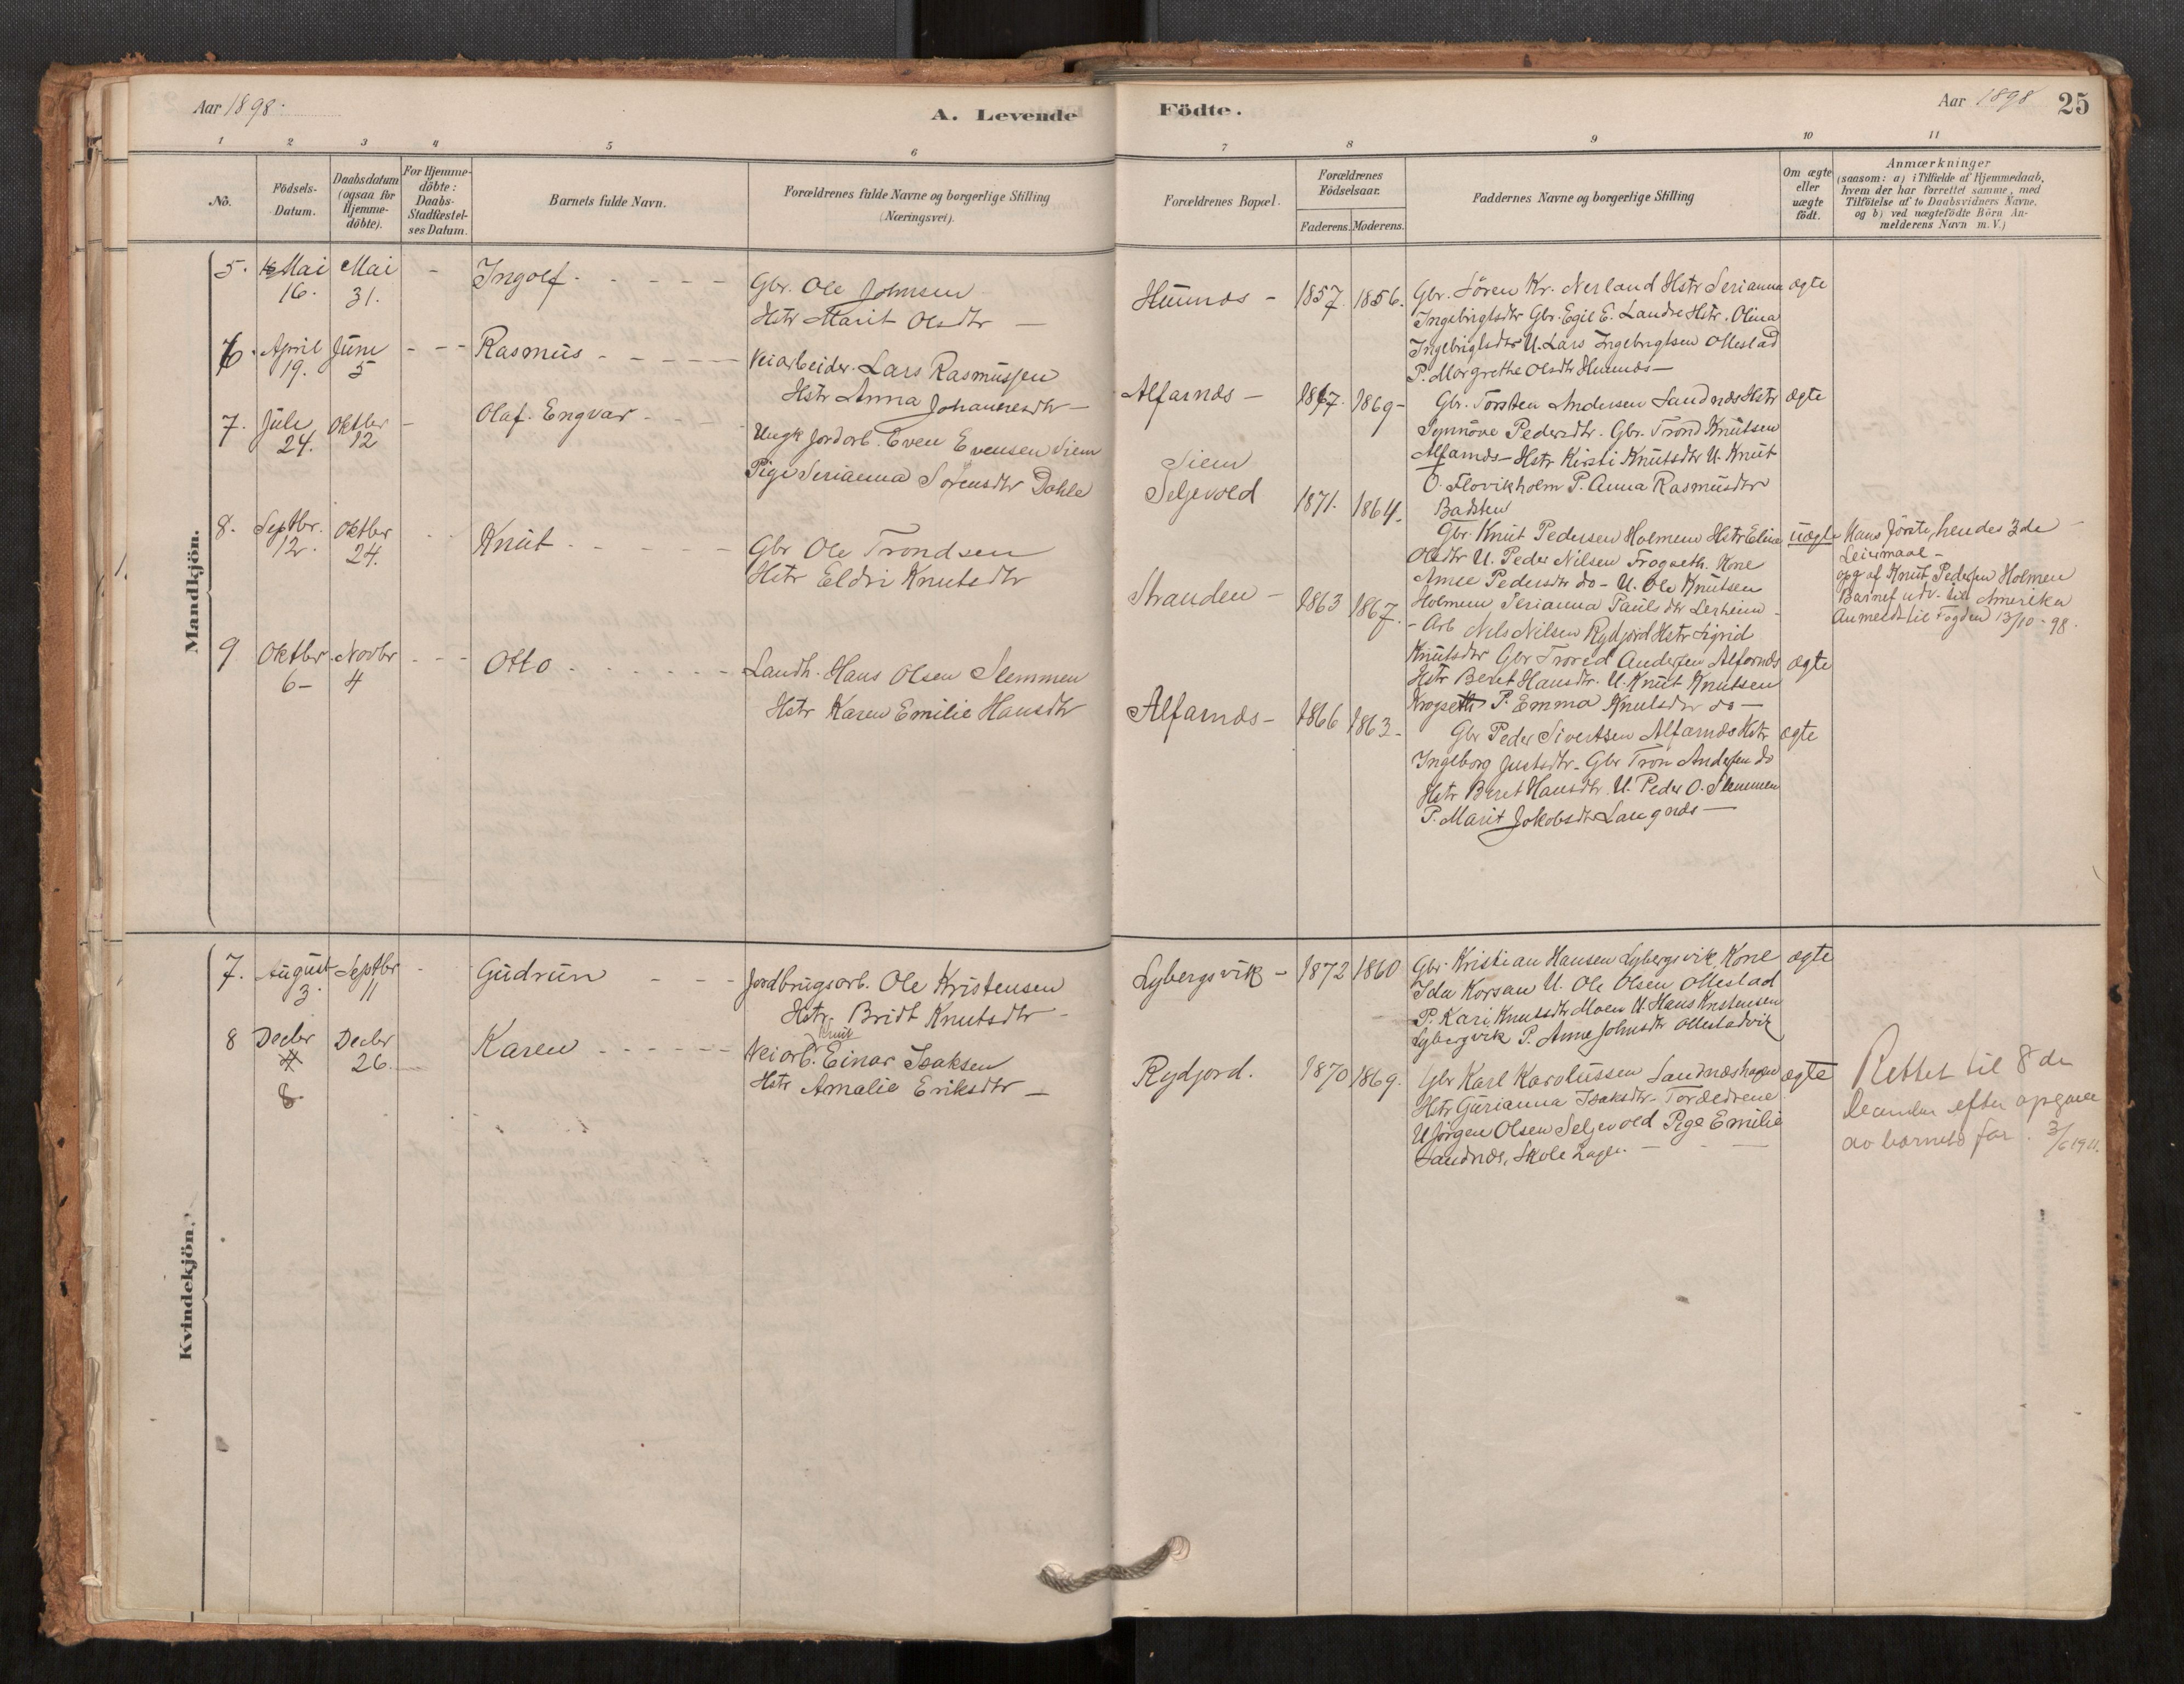 Aar 1898.
A. Levende
Födte.
Aar 1898
25
1 2 3 4 5 6 7 8 9 10 11
No.
Födsels-
Datum.
Daabsdatum
(ogsaa for
Hjemme-
döbte).
For Hjemme-
döbte:
Daabs-
Stadfæstel-
ses Datum.
Barnets fulde Navn.
Forældrenes fulde Navne og borgerlige Stilling
(Næringsvei).
Forældrenes Bopæl.
Forældrenes
Födselsaar.
Faderens. Moderens.
Faddernes Navne og borgerlige Stilling
Om ægte
eller
uægte
födt.
Anmærkninger
(saasom: a) i Tilfælde af Hjemmedaab,
hvem der har forrettet samme, med
Tilföielse af to Daabsvidners Navne,
og b) ved uægtefödte Börn An-
melderens Navn m. V.)
Mandkjön.
5. Mai Mai - Ingolf - - - -
16. 31.
Gbr. Ole Johnsen
Hstr Marit Olsdtr -
Hunnæs - 1857. 1856.
Gbr. Sören Kr. Nerland Hstr Serianna ægte
Ingebrigtsdtr Gbr. Egil E. Landre Hstr. Olina
Ingebrigtsdtr U. Lars Ingebrigtsen Ollestad
P. Margrethe Olsdtr Hunnæs -
6. April Juni - - - Rasmus - - - -
19. 5
Veiarbeider. Lars Rasmussen
Hstr Anna Johannesdtr -
Alfarnæs - 1867. 1869 -
Gbr. Torsten Andersen Sandnæs Hstr ægte
Synnöve Pedersdtr. Gbr. Trond Knutsen
Alfarnæs - Hstr Kirsti Knutsdtr U. Knut
O. Flovikholm P. Anna Rasmusdtr
7. Juli Oktbr - Olaf Engvar - -
24. 12
Ungk Jordarb. Even Evensen Siem
Pige Serianna Sörensdtr Dahle
Siem
Seljevold 1871. 1864.
Gbr. Knut Pedersen Holmem Hstr Eline uægte
Olsdtr U. Peder Nilsen Frogseth. Kone
Anne Pedersdtr do - U. Ole Knutsen
Holmem, Serianna Paulsdtr Lerheim -
Hans förste, hendes 3de
Leiermaal -
opg af Knut Pedersen Holmen
Barnef. udv. til Amerika
Anmeldt til Fogden 13/10-98.
8. Septbr. Oktbr - - Knut - - - - -
12. 24.
Gbr Ole Trondsen
Hstr Eldri Knutsdtr
Stranden - 1863 1867.
- Arb Nels Nilsen Rydjord Hstr Sigrid
Knutsdtr Gbr Trond Andersen Alfarnæs ægte
Hstr Beret Hansdtr. U. Knut Knutsen
Krogseth P. Emma Knutsdtr do -
9 Oktbr. Novbr - - - Otto - - - - - -
6 - 4
Landh. Hans Olsen Slemmen
Hstr Karen Emilie Hansdtr
Alfarnæs - 1866 1863 -
Gbr Peder Sivertsen Alfarnæs Hstr ægte
Ingeborg Justsdtr - Gbr Tron Andersen do
Hstr Beret Hansdtr. U. Peder O. Slemmen
P. Marit Jakobsdtr Langnæs -
Kvindekjön.
7. August Septbr - Gudrun - - -
3. 11
Jordbrugsarb. Ole Kristensen
Hstr. Bridt Knutsdtr -
Lybergsvik - 1872 1860
Gbr. Kristian Hansen Lybergsvik, Kone ægte
Ida Korsan U. Ole Olsen Ollestad
P. Kari Knutsdtr Moen U. Hans Kristensen
Lybergvik P. Anne Johnsdtr Ollestadvik
8 Decbr Decbr Karen - - - - - -
4 26.
8.
Knut
Veiarb. Einar Isaksen
Hstr Amalie Eriksdtr -
Rydjord. 1870 1869.
Gbr Karl Karolussen Sandnæshagen ægte
Hstr Gurianna Isaksdtr - Forældrene
U Jörgen Olsen Seljevold Pige Emilie
Sandnæs, Skole
Rettet til 8 de
December efter opgave
av barnets far. 3/6 1911.